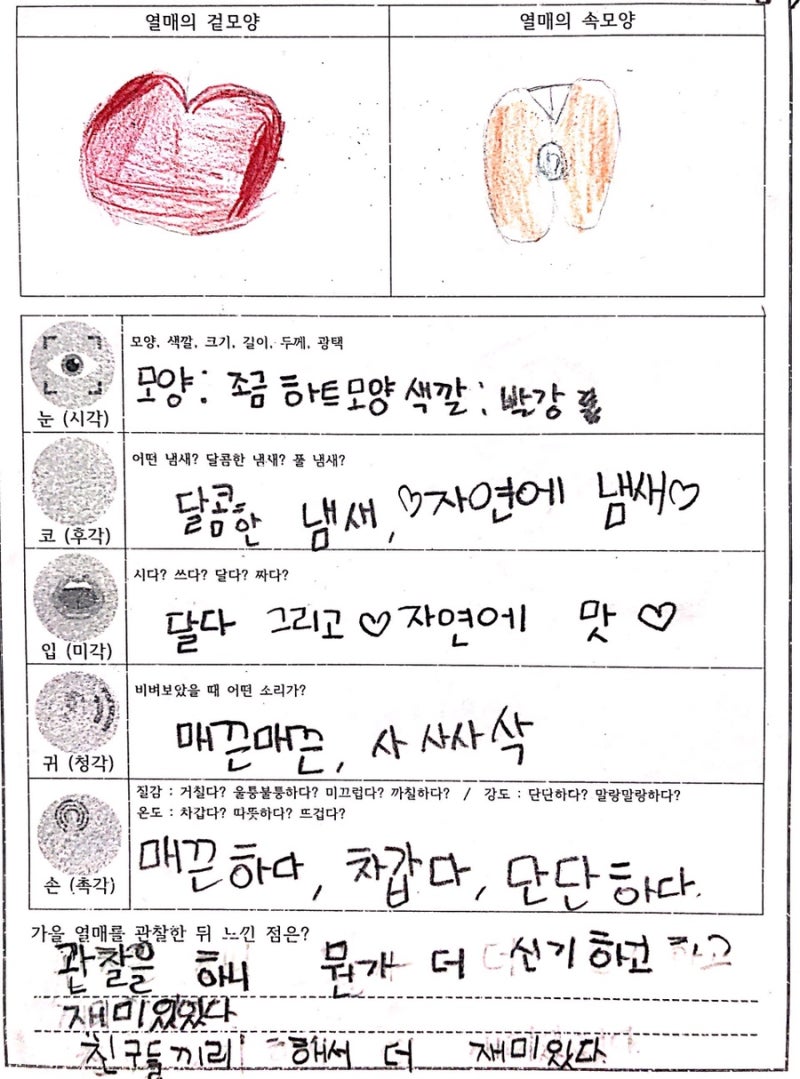 열매의 겉모양
열매의 속모양
모양, 색깔, 크기, 길이, 두께, 광택
모양: 조금 하트모양 색깔: 빨강
눈 (시각)
어떤 냄새? 달콤한 냄새? 풀 냄새?
달콤한 냄새, ♡자연에 냄새♡
코 (후각)
시다? 쓰다? 달다? 짜다?
달다 그리고 ♡자연에 맛 ♡
입 (미각)
비벼보았을 때 어떤 소리가?
매끈매끈, 사 사사삭
귀 (청각)
질감 : 거칠다? 울퉁불퉁하다? 미끄럽다? 까칠하다? / 강도 : 단단하다? 말랑말랑하다?
온도 : 차갑다? 따뜻하다? 뜨겁다?
매끈하다, 차갑다, 단단하다.
손 (촉각)
가을 열매를 관찰한 뒤 느낀 점은?
관찰을 하니 뭔가 더 신기하고
재미있었다
친구들끼리 해서 더 재미있다